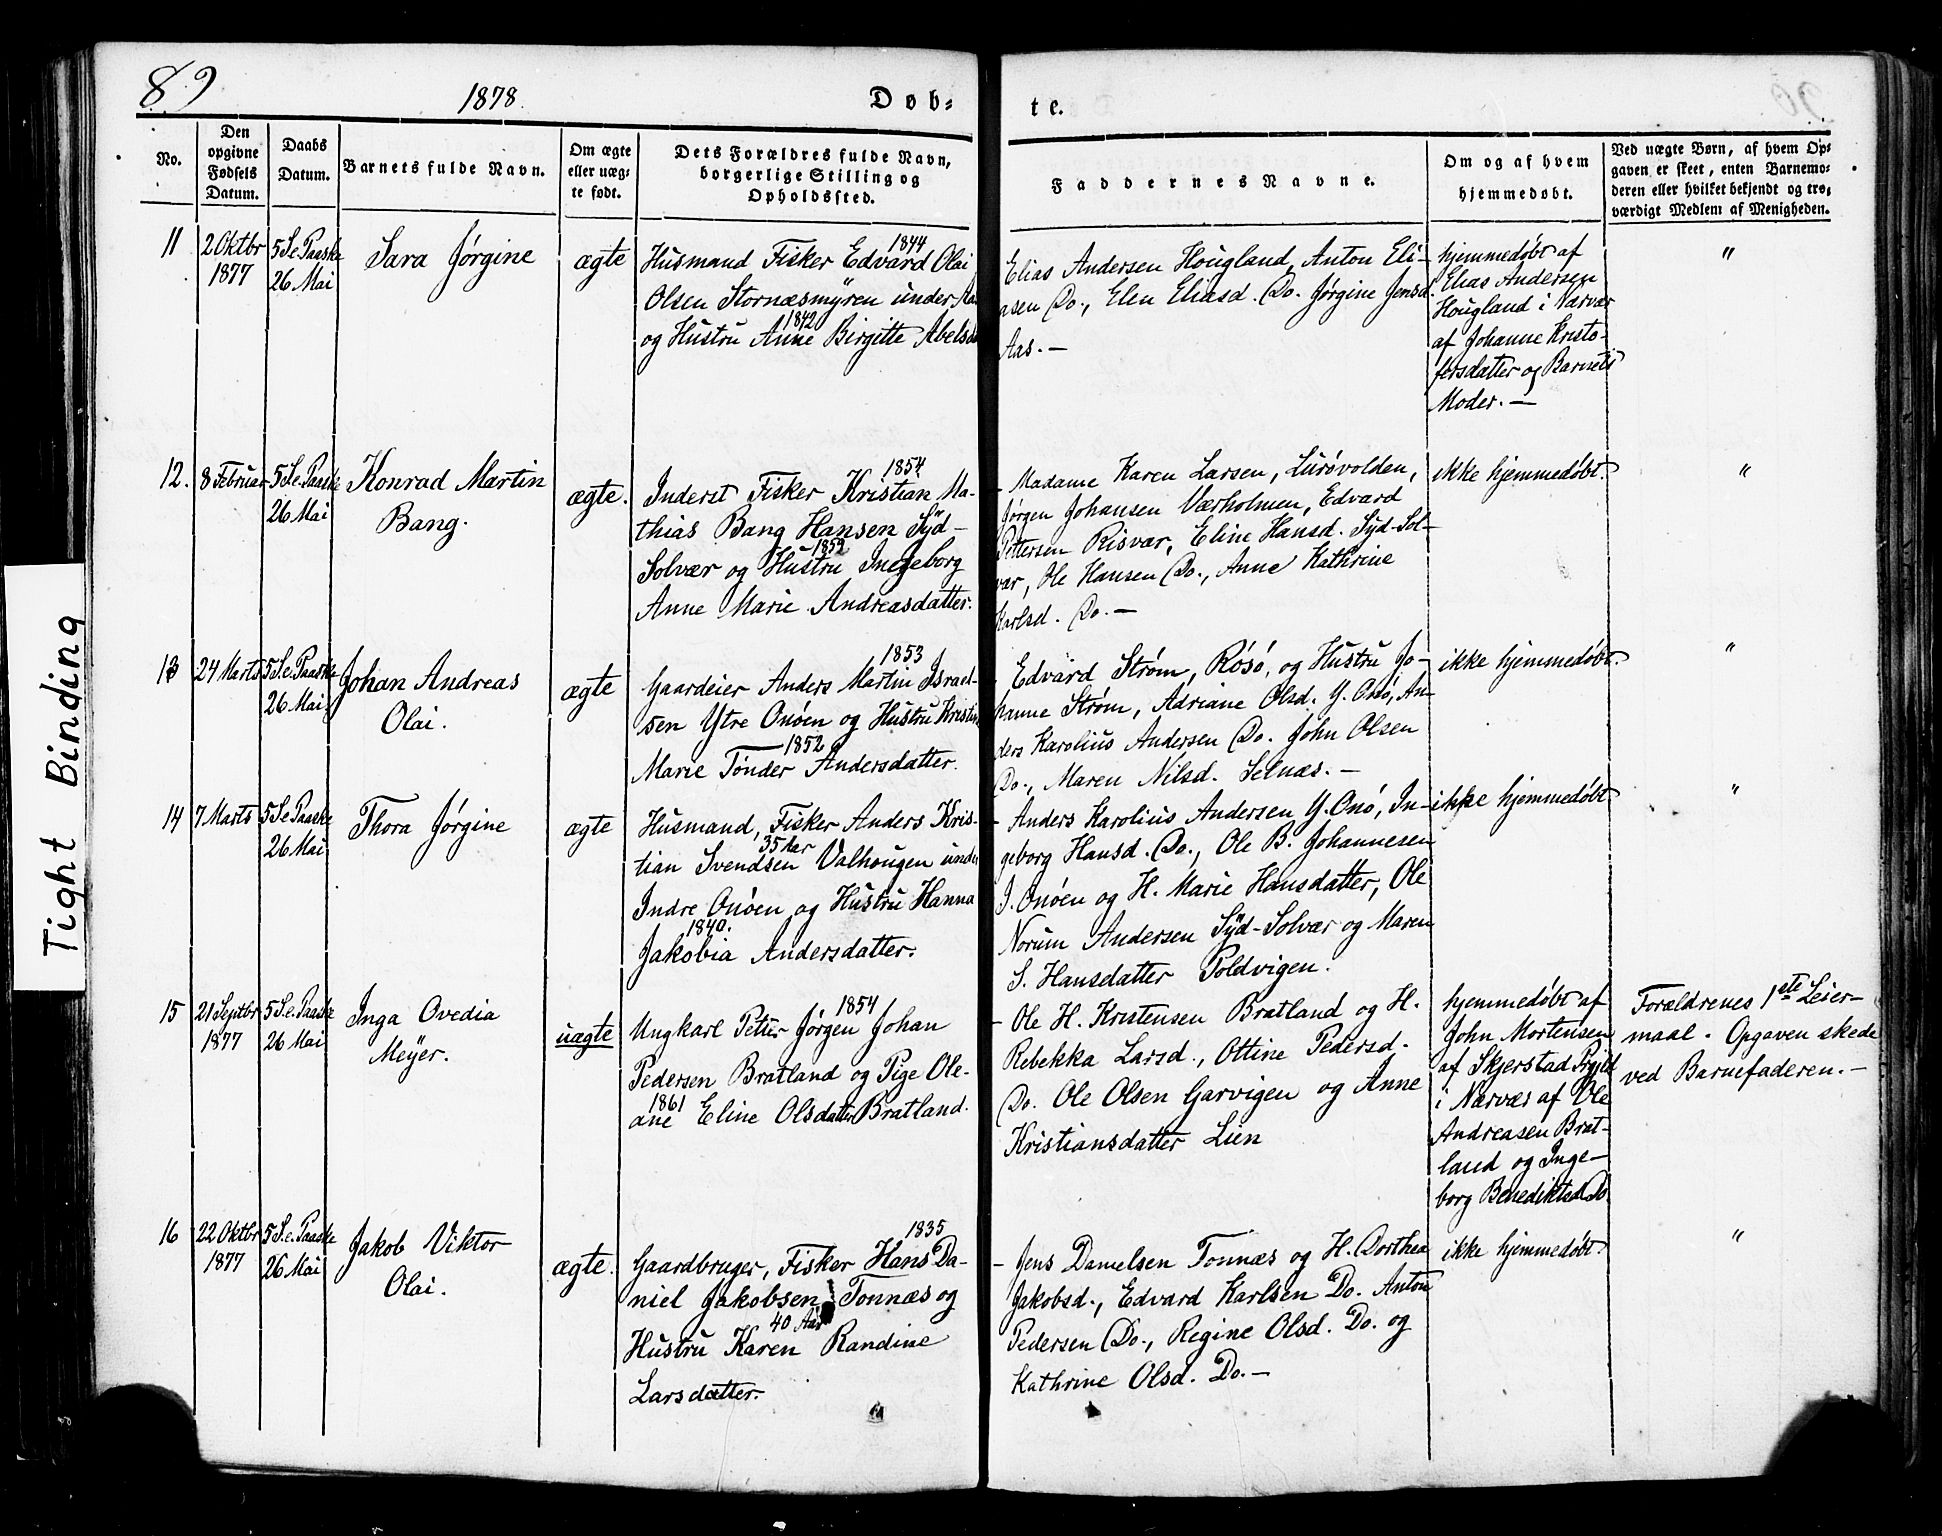 89
1878.
Døb-
te.
No.
Den
opgivne
Fødsels
Datum.
Daabs
Datum.
Barnets fulde Navn.
Om ægte
eller uæg-
te født.
Dets Forældres fulde Navn,
borgerlige Stilling og
Opholdssted.
Faddernes Navne.
Om og af hvem
hjemmedøbt.
Ved uægte Børn, af hvem Op-
gaven er skeet, enten Barnemo-
deren eller hvilket bekjendt og tro-
værdigt Medlem af Menigheden.
11
2 Oktbr
1877
5 S. e. Paaske
26 Mai
Sara Jørgine
ægte
1844
Husmand Fisker Edvard Olai
Olsen Stornæsmÿren under Aa
1842
og Hustru Anne Birgitte Abelsd
Elias Andersen Hougland, Anton Eli-
asen Do., Elen Eliasd. Do. Jørgine Jensd.
Aas. —
hjemmedøbt af
Elias Andersen
Hougland i Nærvær
af Johanne Kristo-
fersdatter og Barnets
Moder. —
"
12.
8 Februar
5 S. e. Paaske
26 Mai
Konrad Martin
Bang.
ægte.
1854
Inderst Fisker Kristian Ma-
thias Bang Hansen Sÿd-
1852
Solvær og Hustru Ingeborg
Anne Marie Andreasdatter.
- Madame Karen Larsen, Lurøvolden,
Jørgen Johansen Værholmen, Edvard
Pettersen Risvær, Eline Hansd. Sÿd-Sol-
vær, Ole Hansen Do., Anne Kathrine
Karlsd. Do. —
ikke hjemmedøbt.
"
13
24 Marts
5 S. e. Paaske
26 Mai
Johan Andreas
Olai.
ægte
1853
Gaardeier Anders Martin Israel-
sen Ytre Onøen og Hustru Kristine
1852
Marie Tønder Andersdatter.
- Edvard Strøm, Røsø, og Hustru Jo-
hanne Strøm, Adriane Olsd. Y. Onø, An-
ders Karolius Andersen Do. John Olsen
Do., Maren Nilsd. Selnæs. —
ikke hjemmedøbt.
"
14
7 Marts
5 S. e. Paaske
26 Mai
Thora Jørgine
ægte
Husmand, Fisker Anders Kris-
35 Aar
tian Svendsen Valhougen under
Indre Onøen og Hustru Hanna
1840.
Jakobia Andersdatter.
- Anders Karolius Andersen Y. Onø, In-
geborg Hansd. Do., Ole B. Johannesen
I. Onøen og H. Marie Hansdatter, Ole
Norum Andersen Sÿd-Solvær og Maren
S. Hansdatter Poldvigen.
ikke hjemmedøbt
"
15
21 Septbr
1877
5 S. e. Paaske
26 Mai
Inga Ovedia
Meÿer.
uægte
1854
Ungkarl Petter Jørgen Johan
Pedersen Bratland og Pige Ole-
1861
ane Eline Olsdatter Bratland.
- Ole H. Kristensen Bratland og H.
Rebekka Larsd., Ottine Pedersd.
Do. Ole Olsen Garvigen og Anne
Kristiansdatter Lien
hjemmedøbt af
John Mortensen
af Skjerstad Prgjld
i Nærvær af Ole
Andreasen Brat-
land og Inge-
borg Benediktsd. Do.
Forældrenes 1ste Leier-
maal. Opgaven skede
ved Barnefaderen. —
16
22 Oktbr
1877
5 S. e. Paaske
26 Mai
Jakob Viktor
Olai.
ægte.
1835
Gaardbruger, Fisker Hans Da-
niel Jakobsen Tonnæs og
40 Aar
Hustru Karen Randine
Larsdatter.
- Jens Danielsen Tonnæs og H. Dorthea
Jakobsd., Edvard Karlsen Do. Anton
Pedersen Do., Regine Olsd. Do. og
Kathrine Olsd. Do. —
ikke hjemmedøbt.
"
Tight Binding